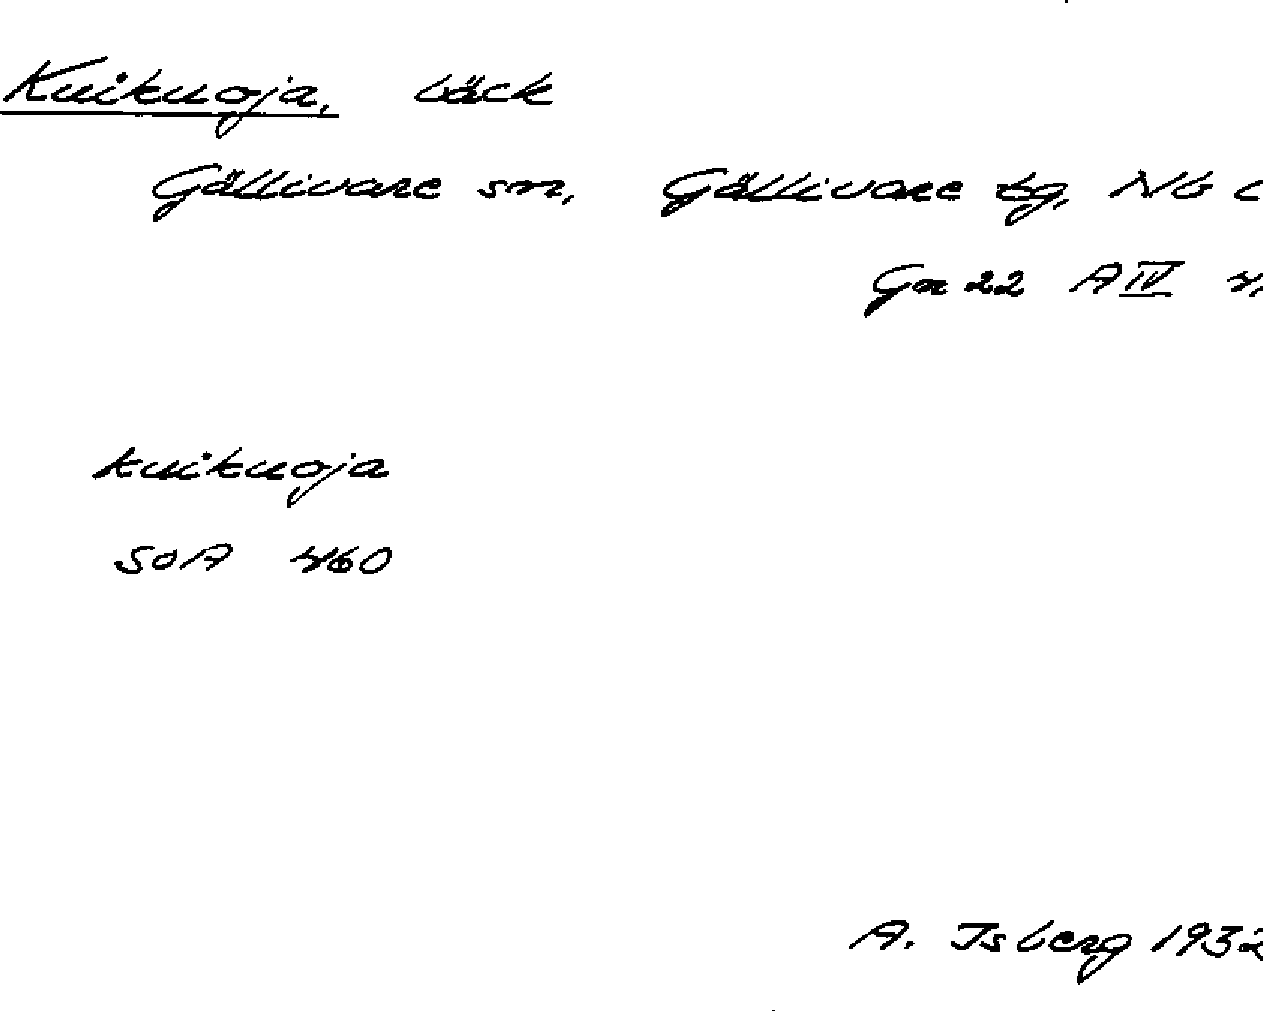 Kuikuoja, bäck
Gällivare sn, Gällivare tg, Nb
Gn 22 A IV
kuikuoja
SOA 460
A. Isberg 1932